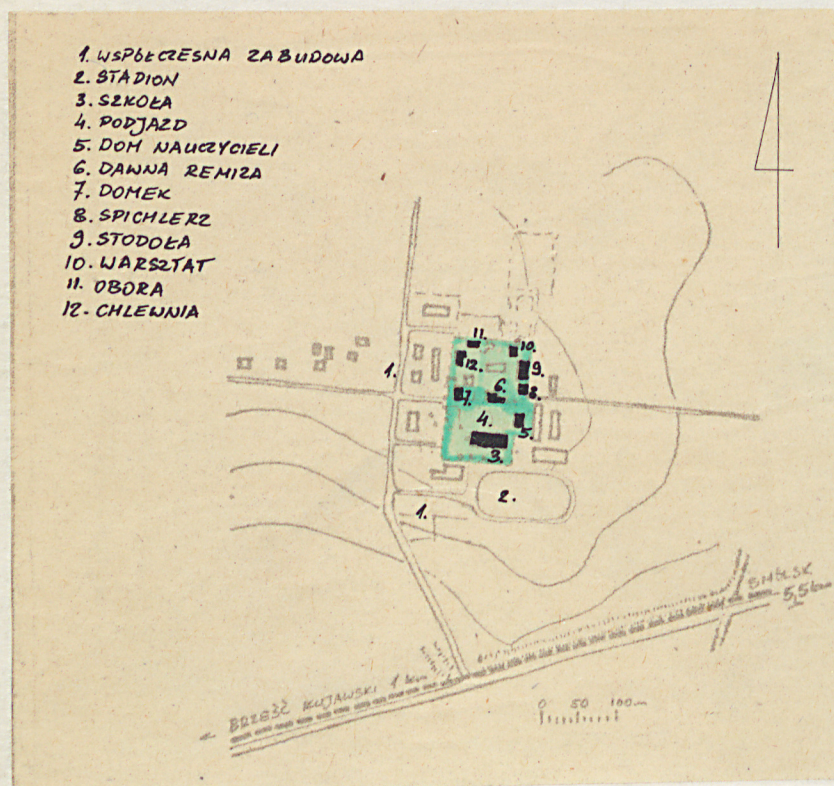 1. WSPÓŁCZESNA ZABUDOWA
2. STADION
3. SZKOŁA
4. PODJAZD
5. DOM NAUCZYCIELI
6. DAWNA REMIZA
7. DOMEK
8. SPICHLERZ
9. STODOŁA
10. WARSZTAT
11. OBORA
12. CHLEWNIA
11.
10.
1.
12.
9.
7.
6.
8.
4.
5.
3.
2.
1.
SMÓLSK
5,5 km
← BRZEŚĆ KUJAWSKI 1 km
0 50 100m